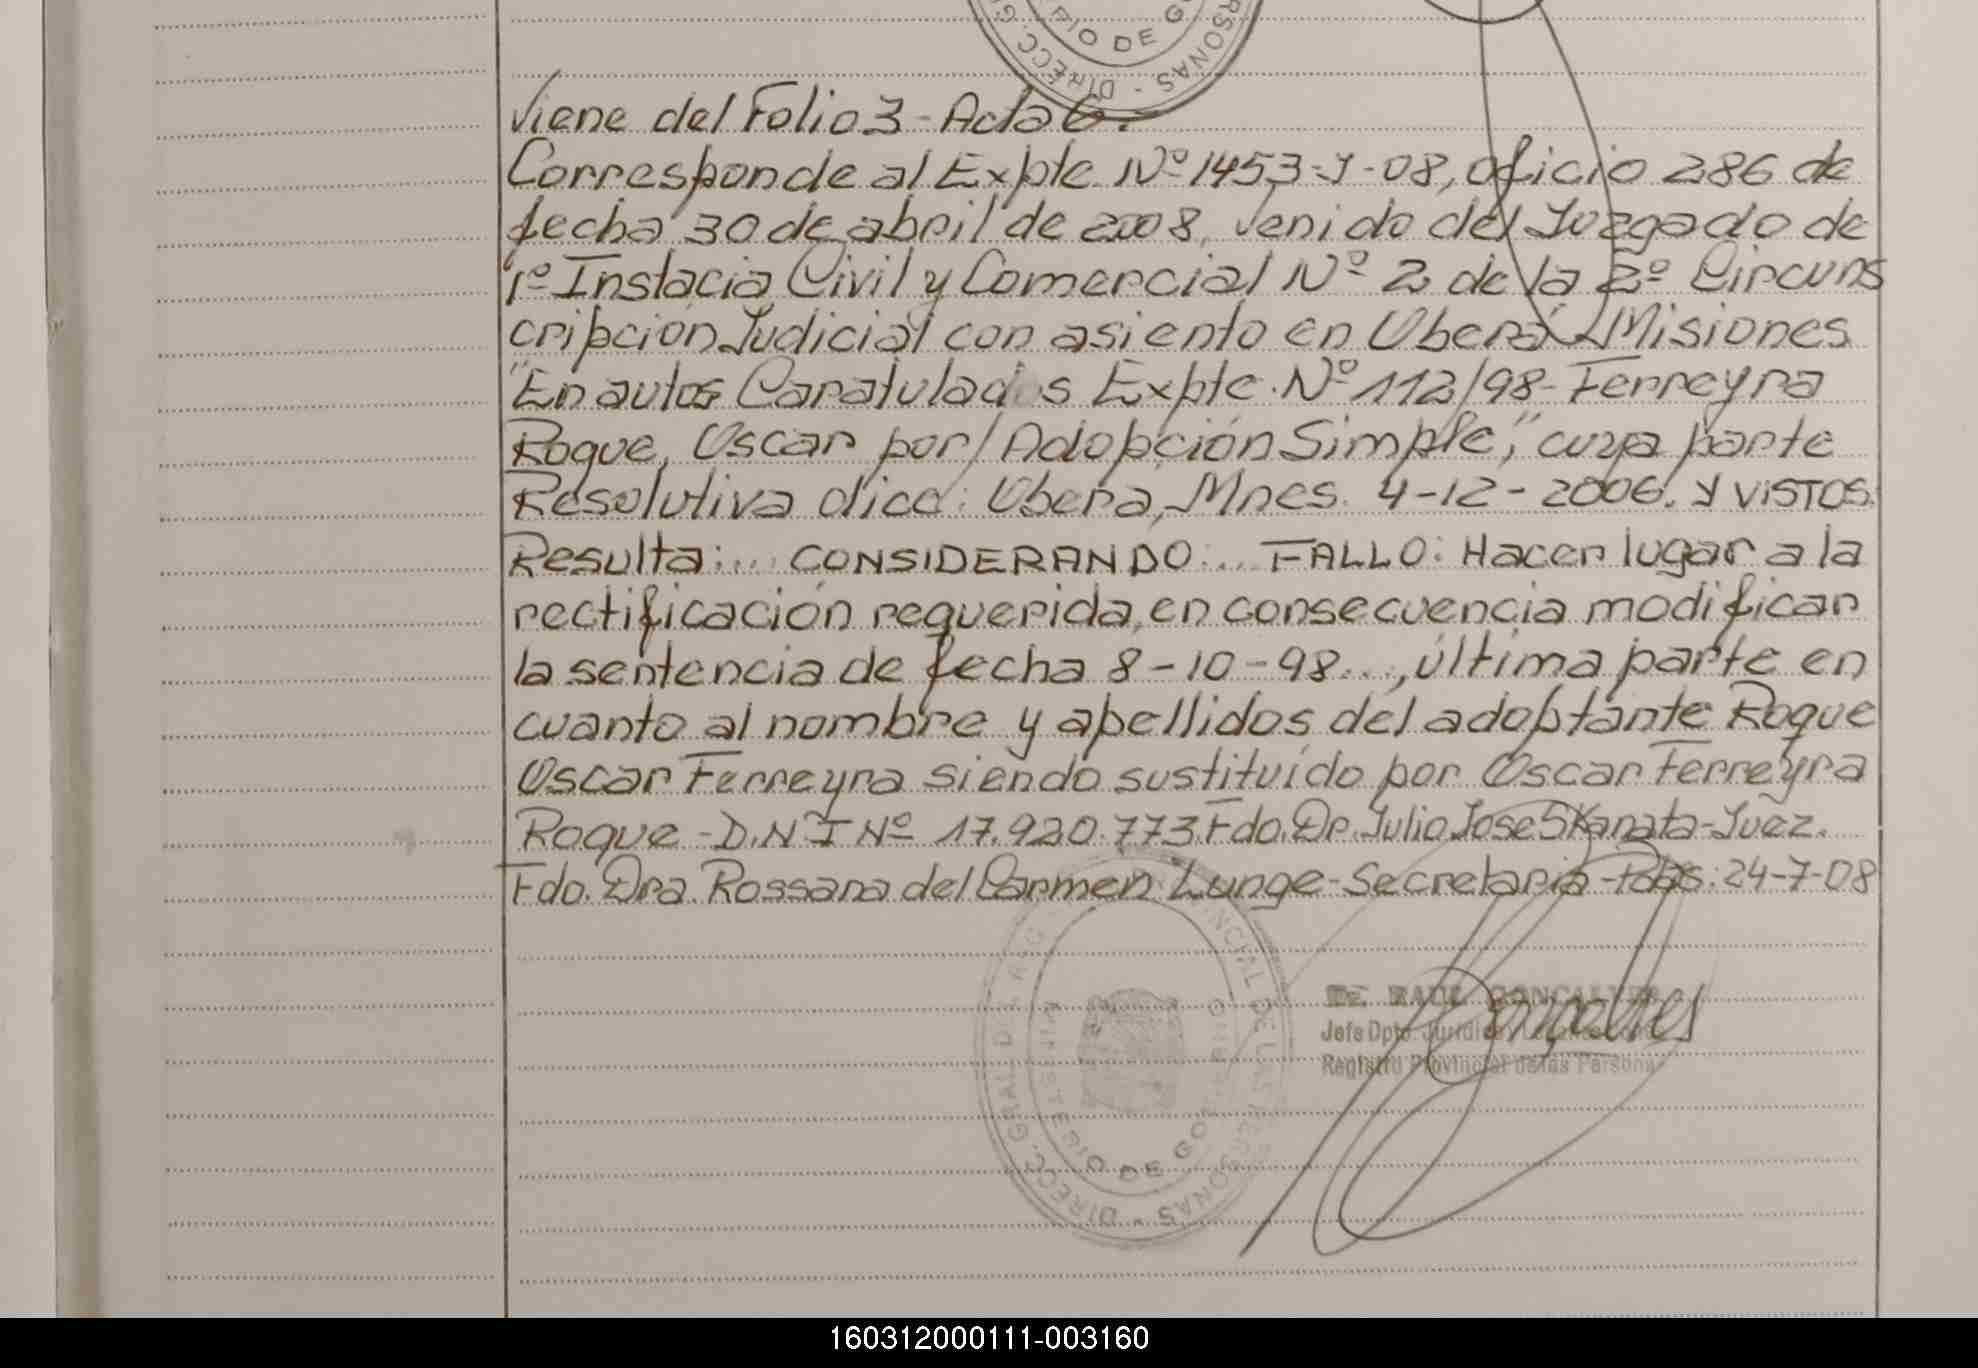 RIO DE GO
DIRECC. G
RSONAS -
Viene del Folio 3 - Acta 6.
Corresponde al Expte Nº 1453-J-08, oficio 286 de
fecha 30 de abril de 2008, venido del Juzgado de
1º Instacia Civil y Comercial Nº 2 de la 2º Circuns
cripción Judicial con asiento en Oberá Misiones
"En autos Caratulados Expte. Nº 112/98- Ferreyra
Roque, Oscar por/ Adopción Simple", cuya parte
Resolutiva dice: Obera, Mnes. 4-12-2006. Y VISTOS.
Resulta:... CONSIDERANDO:... FALLO: Hacer lugar a la
rectificación requerida, en consecuencia modificar
la sentencia de fecha 8-10-98..., última parte en
cuanto al nombre y apellidos del adoptante Roque
Oscar Ferreyra siendo sustituído por Oscar Ferreyra
Roque - D.N.I Nº 17.920.773 Fdo. Dr. Julio Jose SKanata-Juez.
Fdo. Dra. Rossana del Carmen Lunge- Secretaria - Pdas. 24-7-08
DIRECC. GRAL. DE L REG. PROVINCIAL DE LAS PERSONAS -
MINISTERIO DE GOBIERNO
Dr. RAUL GONCALVES
Jefe Dpto. Jurídico
Registro Provincial de las Personas
160312000111-003160